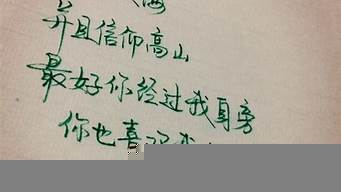 海
并且信仰高山
最好你经过我身旁
你也喜